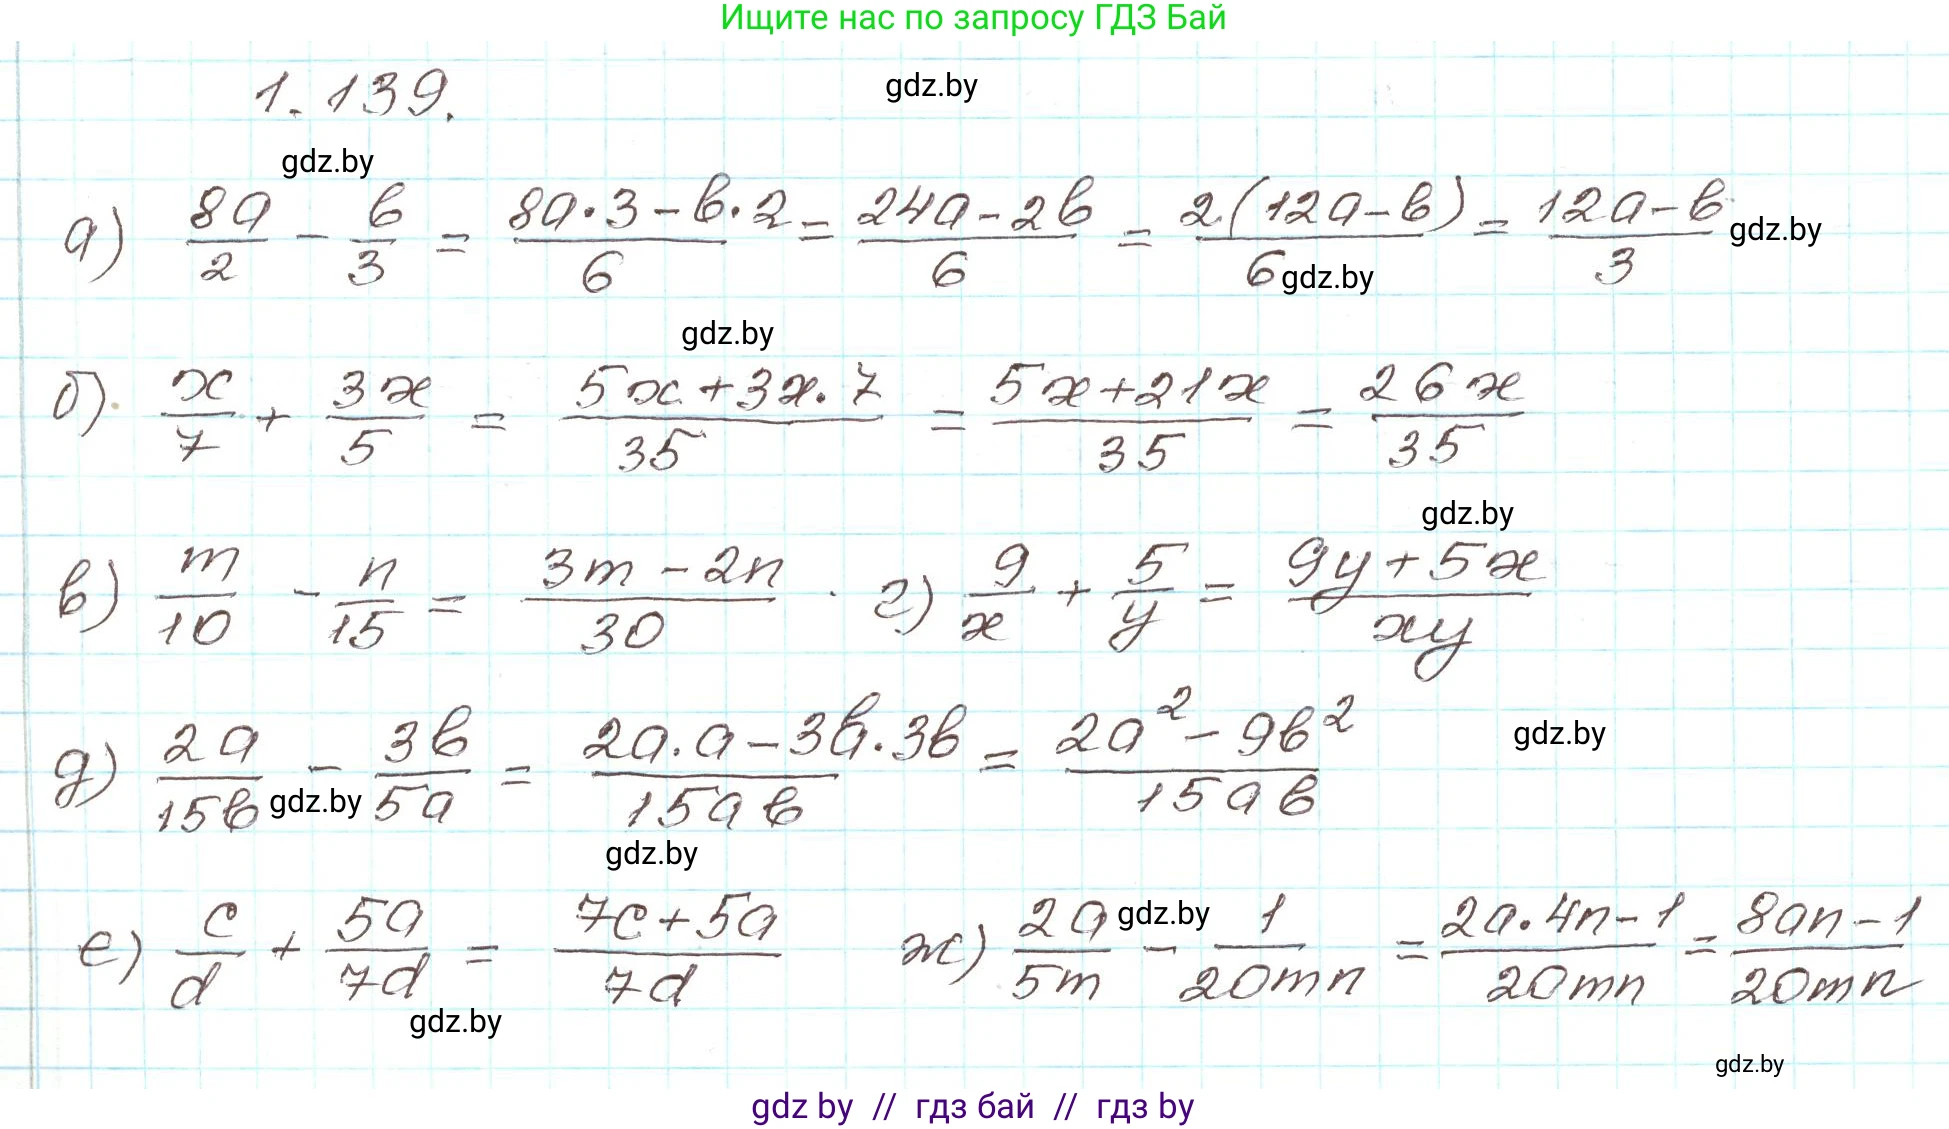 Ищите нас по запросу ГДЗ Бай
1.139.
gdz.by
gdz.by
а) 8a/2 - b/3 = (8a·3-b·2)/6 = (24a-2b)/6 = 2(12a-b)/6 = (12a-b)/3
gdz.by
gdz.by
gdz.by
б) x/7 + 3x/5 = (5x+3x·7)/35 = (5x+21x)/35 = 26x/35
gdz.by
в) m/10 - n/15 = (3m-2n)/30 . г) 9/x + 5/y = (9y+5x)/xy
д) 2a/15b - 3b/5a = (2a·a-3b·3b)/15ab = (2a²-9b²)/15ab
gdz.by
gdz.by
gdz.by
е) c/d + 5a/7d = (7c+5a)/7d ж) 2a/5m - 1/20mn = (2a·4n-1)/20mn = (8an-1)/20mn
gdz.by
gdz.by
gdz.by
gdz by // гдз бай // гдз by